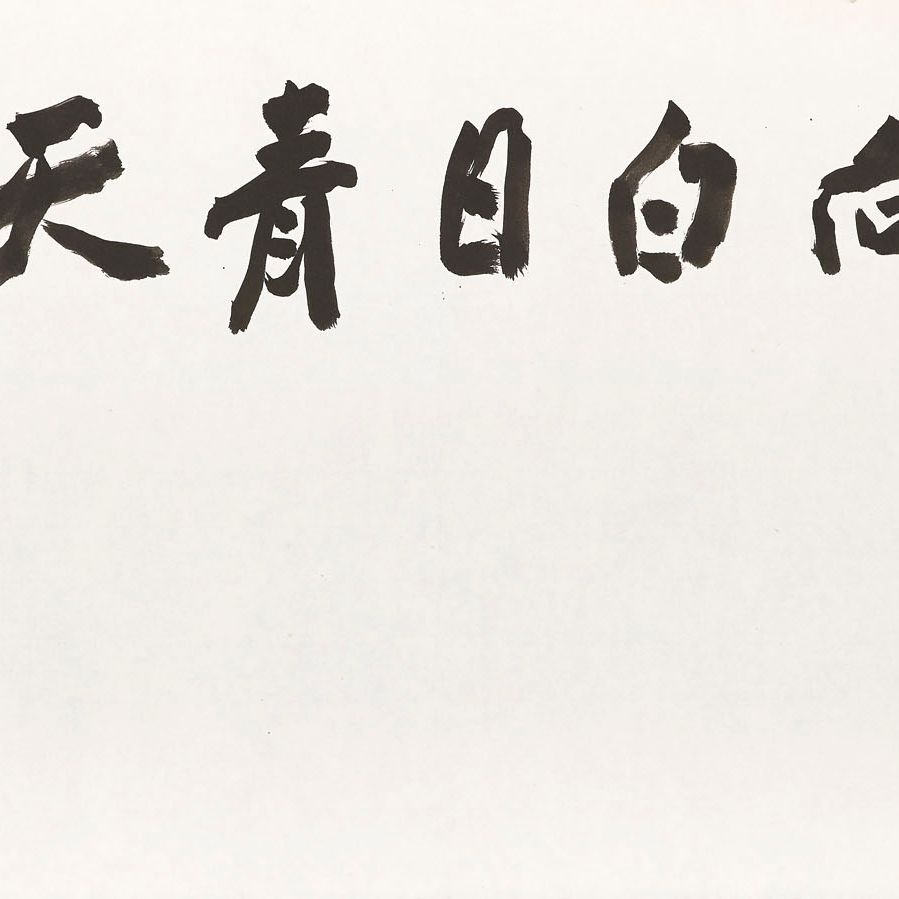 向白日青天